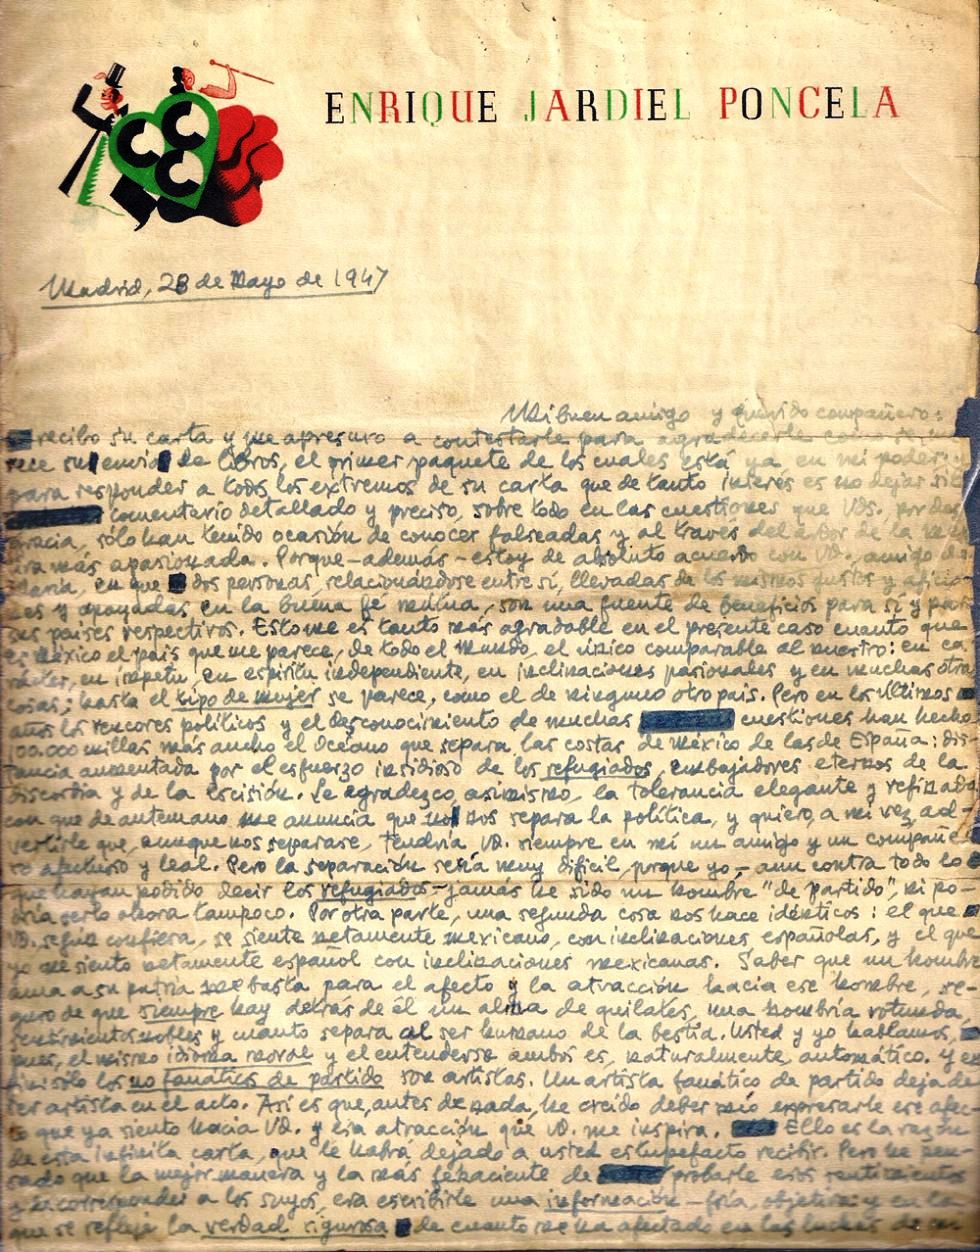 CCC
ENRIQUE JARDIEL PONCELA
Madrid, 28 de Mayo de 1947
Mi buen amigo y querido compañero:
recibo su carta y me apresuro a contestarle para agradecerle como se me-
rece su envio de libros, el primer paquete de los cuales está ya en mi poder, y
para responder a todos los extremos de su carta que de tanto interés es no dejar sin
comentario detallado y preciso, sobre todo en las cuestiones que Vds. por des-
gracia, sólo han tenido ocasión de conocer falseadas y al través del de la
más apasionada. Porque -además- estoy de absoluto acuerdo con Vd. amigo
en que dos personas, relacionándose entre sí, llevadas de los mismos gustos y aficio-
nes y apoyadas en la buena fé mútua, son una fuente de beneficios para sí y para
sus países respectivos. Esto me es tanto más agradable en el presente caso cuanto que
es México el país que me parece, de todo el mundo, el único comparable al nuestro: en ca-
rácter, en ímpetu, en espíritu independiente, en inclinaciones pasionales y en muchas otras
cosas; hasta el tipo de mujer se parece, como el de ninguno otro país. Pero en los últimos
años los rencores políticos y el desconocimiento de muchas cuestiones han hecho
100.000 millas más ancho el Océano que separa las costas de México de las de España: dis-
tancia aumentada por el esfuerzo insidioso de los refugiados, embajadores eternos de la
discordia y de la escisión. Le agradezco, asimismo, la tolerancia elegante y refinada
con que de antemano me anuncia que no nos separa la política, y quiero, a mi vez, ad-
vertirle que, aunque nos separase, tendría Vd. siempre en mí un amigo y un compañe-
ro afectuoso y leal. Pero la separación sería muy difícil, porque yo,- aun contra todo lo
que hayan podido decir los refugiados -jamás he sido un hombre "de partido", ni po-
dría serlo ahora tampoco. Por otra parte, una segunda cosa nos hace idénticos: el que
Vd. según confiesa, se siente netamente mexicano, con inclinaciones españolas, y el que
yo me siento netamente español con inclinaciones mexicanas. Saber que un hombre
ama a su patria me basta para el afecto y la atracción hacia ese hombre, se-
guro de que siempre hay detrás de él un alma de quilates, una hombría rotunda,
sentimientos nobles y cuanto separa al ser humano de la bestia. Usted y yo hablamos,
pues, el mismo idioma moral y el entenderse ambos es, naturalmente, automático. Y en
fin: sólo los no fanáticos de partido son artistas. Un artista fanático de partido deja de
ser artista en el acto. Así es que, antes de nada, he creído deber mío expresarle ese afec-
to que ya siento hacia Vd. y esa atracción que Vd. me inspira. Ello es la razón
de esta infinita carta, que le habrá dejado a usted estupefacto recibir. Pero he pen-
sado que la mejor manera y la más fehaciente de probarle esos sentimientos
y de corresponder a los suyos, era escribirle una información - fría, objetiva y en la
que se refleje la verdad rigurosa de cuanto me ha afectado en las luchas de